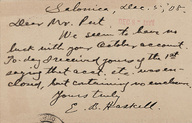 Salonica, Dec. 5, '05.
Dear Mr. Peet,
We seem to have no
luck with your Cables account.
To-day I received yours of the 1st
saying that acct. etc. was en-
closed, but containing no enclosure.
Yours truly,
E. B. Haskell